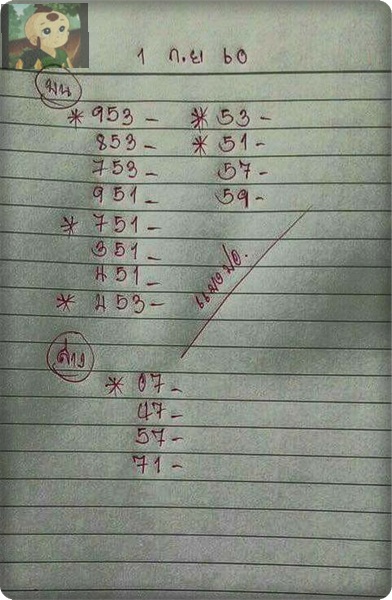 1 ก.ย ๖๐
บน
* 953 -
853 -
753 -
951 -
* 751 -
351 -
451 -
* 453 -
* 53 -
* 51 -
57 -
59 -
ล่าง
* 07 -
47 -
57 -
71 -